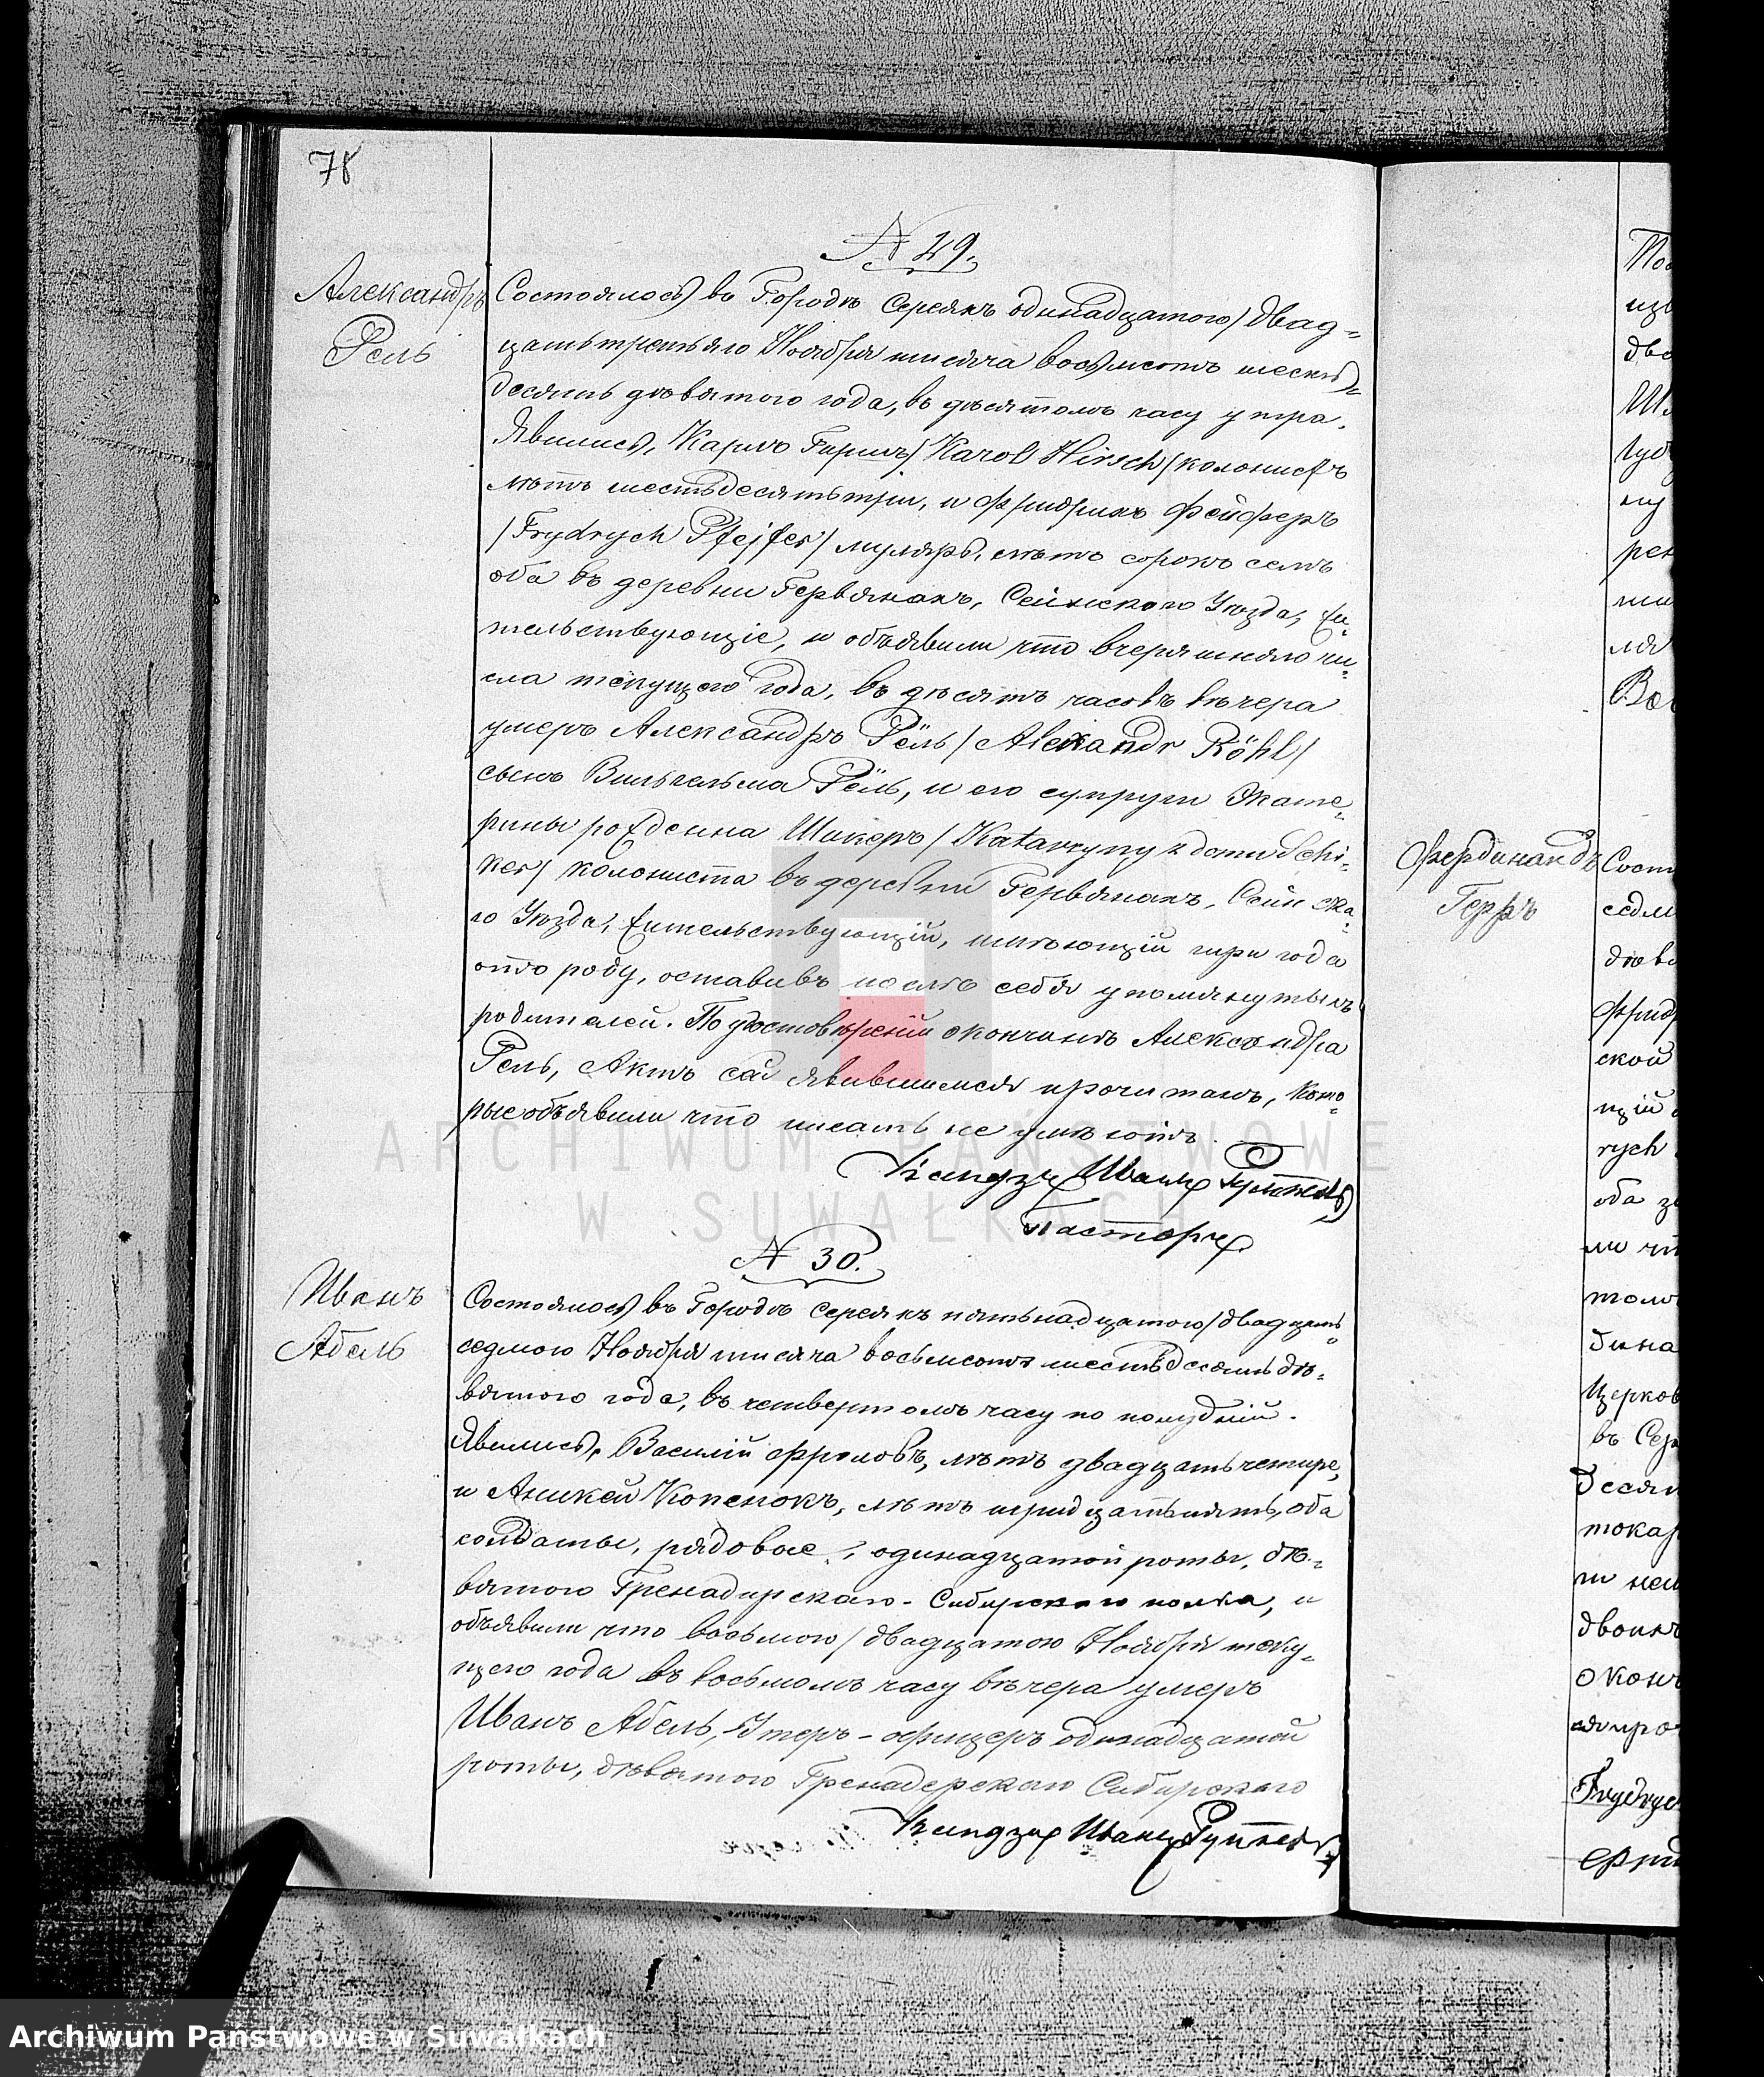 78
№ 29.
Александръ
Рель
Состоялось въ Городѣ Сереяхъ одинадцатого/двад=
цатьтретьяго Ноября тысяча восьмсотъ шесть=
десять девятого года, въ десятомъ часу утра.
Явились, Карлъ Гиршъ /Karol Hirsch/ колонистъ
лѣтъ шестьдесятьтри, и Фридрихъ Фейферъ
/Frydrych Pfejfer/ муляръ, лѣтъ сорокъ семъ
оба въ деревни Гервянахъ, Сейнского Уѣзда, жи=
тельствующіе, и объявили что вчерашняго чи=
сла текущего года, въ десятъ часовъ вечера
умеръ Александръ Рёль /Alexandr Röhl/
сынъ Вильгельма Рёль, и его супруги Экате=
рины рождённа Шикеръ /Katarzyny z domu Schi=
ker/ колониста въ деревни Гервянахъ, Сейнска=
го Уѣзда, жительствующій, имѣющій три года
отъ роду, оставивъ послѣ себя упомянутыхъ
родителей. По удостовѣреніи окончинѣ Александра
Рель, Актъ сей явившимся прочитанъ, кото=
рые объявили что писать не умѣютъ.
Ксендзъ Иванъ
Пасторъ
№ 30.
Иванъ
Абель
Состоялось въ Городѣ Сереяхъ пятьнадцатого/двадцать
седмого Ноября тысяча восьмсотъ шестьдесять де=
вятого года, въ четвертомъ часу по полудній.
Явились, Василій Фроловъ, лѣтъ двадцать четыре,
и Аникей Копенокъ, лѣтъ тридцатьпять, оба
солдаты, рядовые, одинадцатой роты, де=
вятого Гренадирскаго-Сибирскаго полка, и
объявили что восьмого/двадцатого Ноября теку=
щего года въ восьмомъ часу вечера умеръ
Иванъ Абель, Унтеръ-офицеръ одинадцатой
роты, девятого Гренадерскаго Сибирскаго
Ксендзъ Иванъ
Фердинандъ
Герръ
Сост
седм
девя
Фрид
ской
щій
rych
оба
ли чт
толь
дина
Церков
въ Сер
десят
токар
ти
двоихъ
окон
Frydryc
ARCHIWUM PAŃSTWOWE
W SUWAŁKACH
Archiwum Państwowe w Suwałkach